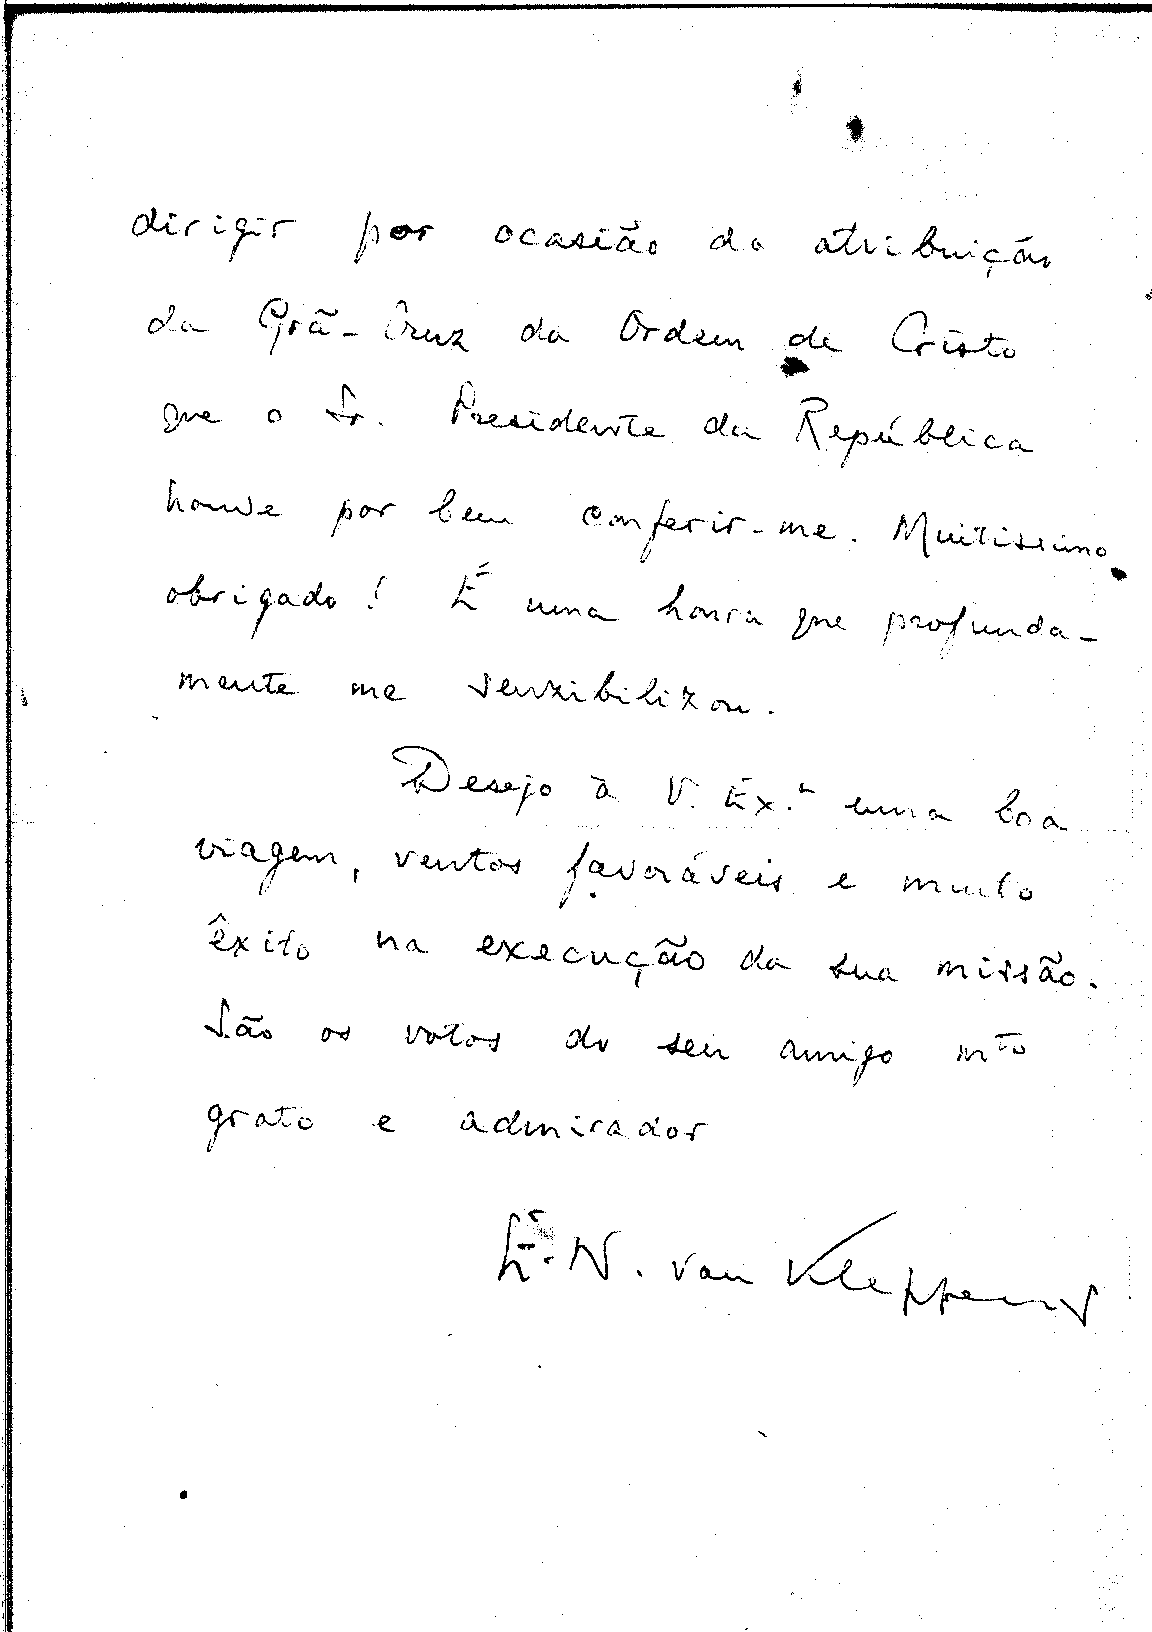 dirigir por ocasião da atribuição
da Grã-Cruz da Ordem de Cristo
que o Sr. Presidente da República
houve por bem conferir-me. Muitíssimo
obrigado! É uma honra que profunda-
mente me senzibilizou.
Desejo à V. Ex.ª uma boa
viagem, ventos favoráveis e muito
êxito na execução da sua missão.
São os votos do seu amigo mto
grato e admirador
E. N. van Kleffens